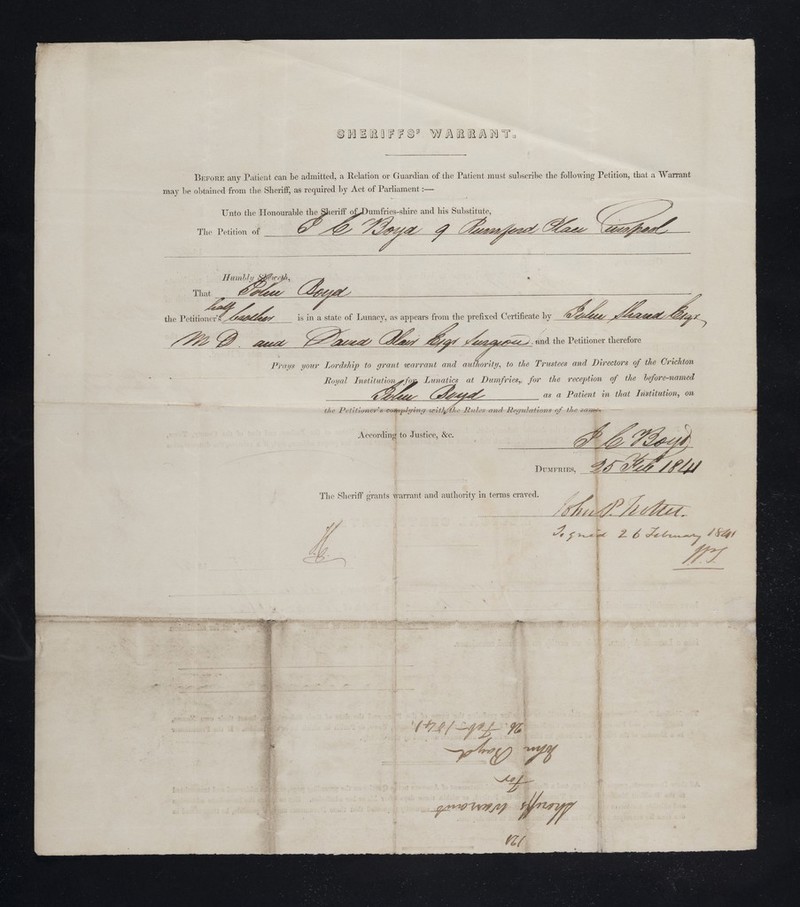 SHERIFFS' WARRANT.
BEFORE any Patient can be admitted, a Relation or Guardian of the Patient must subscribe the following Petition, that a Warrant
may be obtained from the Sheriff, as required by Act of Parliament :—
Unto the Honourable the Sheriff of Dumfries-shire and his Substitute,
The Petition of C Boyd 9 Rumford Place Liverpool
Humbly Sheweth,
That John Boyd
the Petitioner's half brother is in a state of Lunacy, as appears from the prefixed Certificate by John Shand Esqr
M D. and David Blair Esqr Surgeon, and the Petitioner therefore
Prays your Lordship to grant warrant and authority, to the Trustees and Directors of the Crichton
Royal Institution for Lunatics at Dumfries, for the reception of the before-named
John Boyd as a Patient in that Institution, on
the Petitioner's complying with the Rules and Regulations of the same.
According to Justice, &c.
C Boyd
DUMFRIES, 25 Feb 1841
The Sheriff grants warrant and authority in terms craved.
John
Signed 26 February 1841
121
Sheriffs Warrant
for
John Boyd
26 Feb 1841.